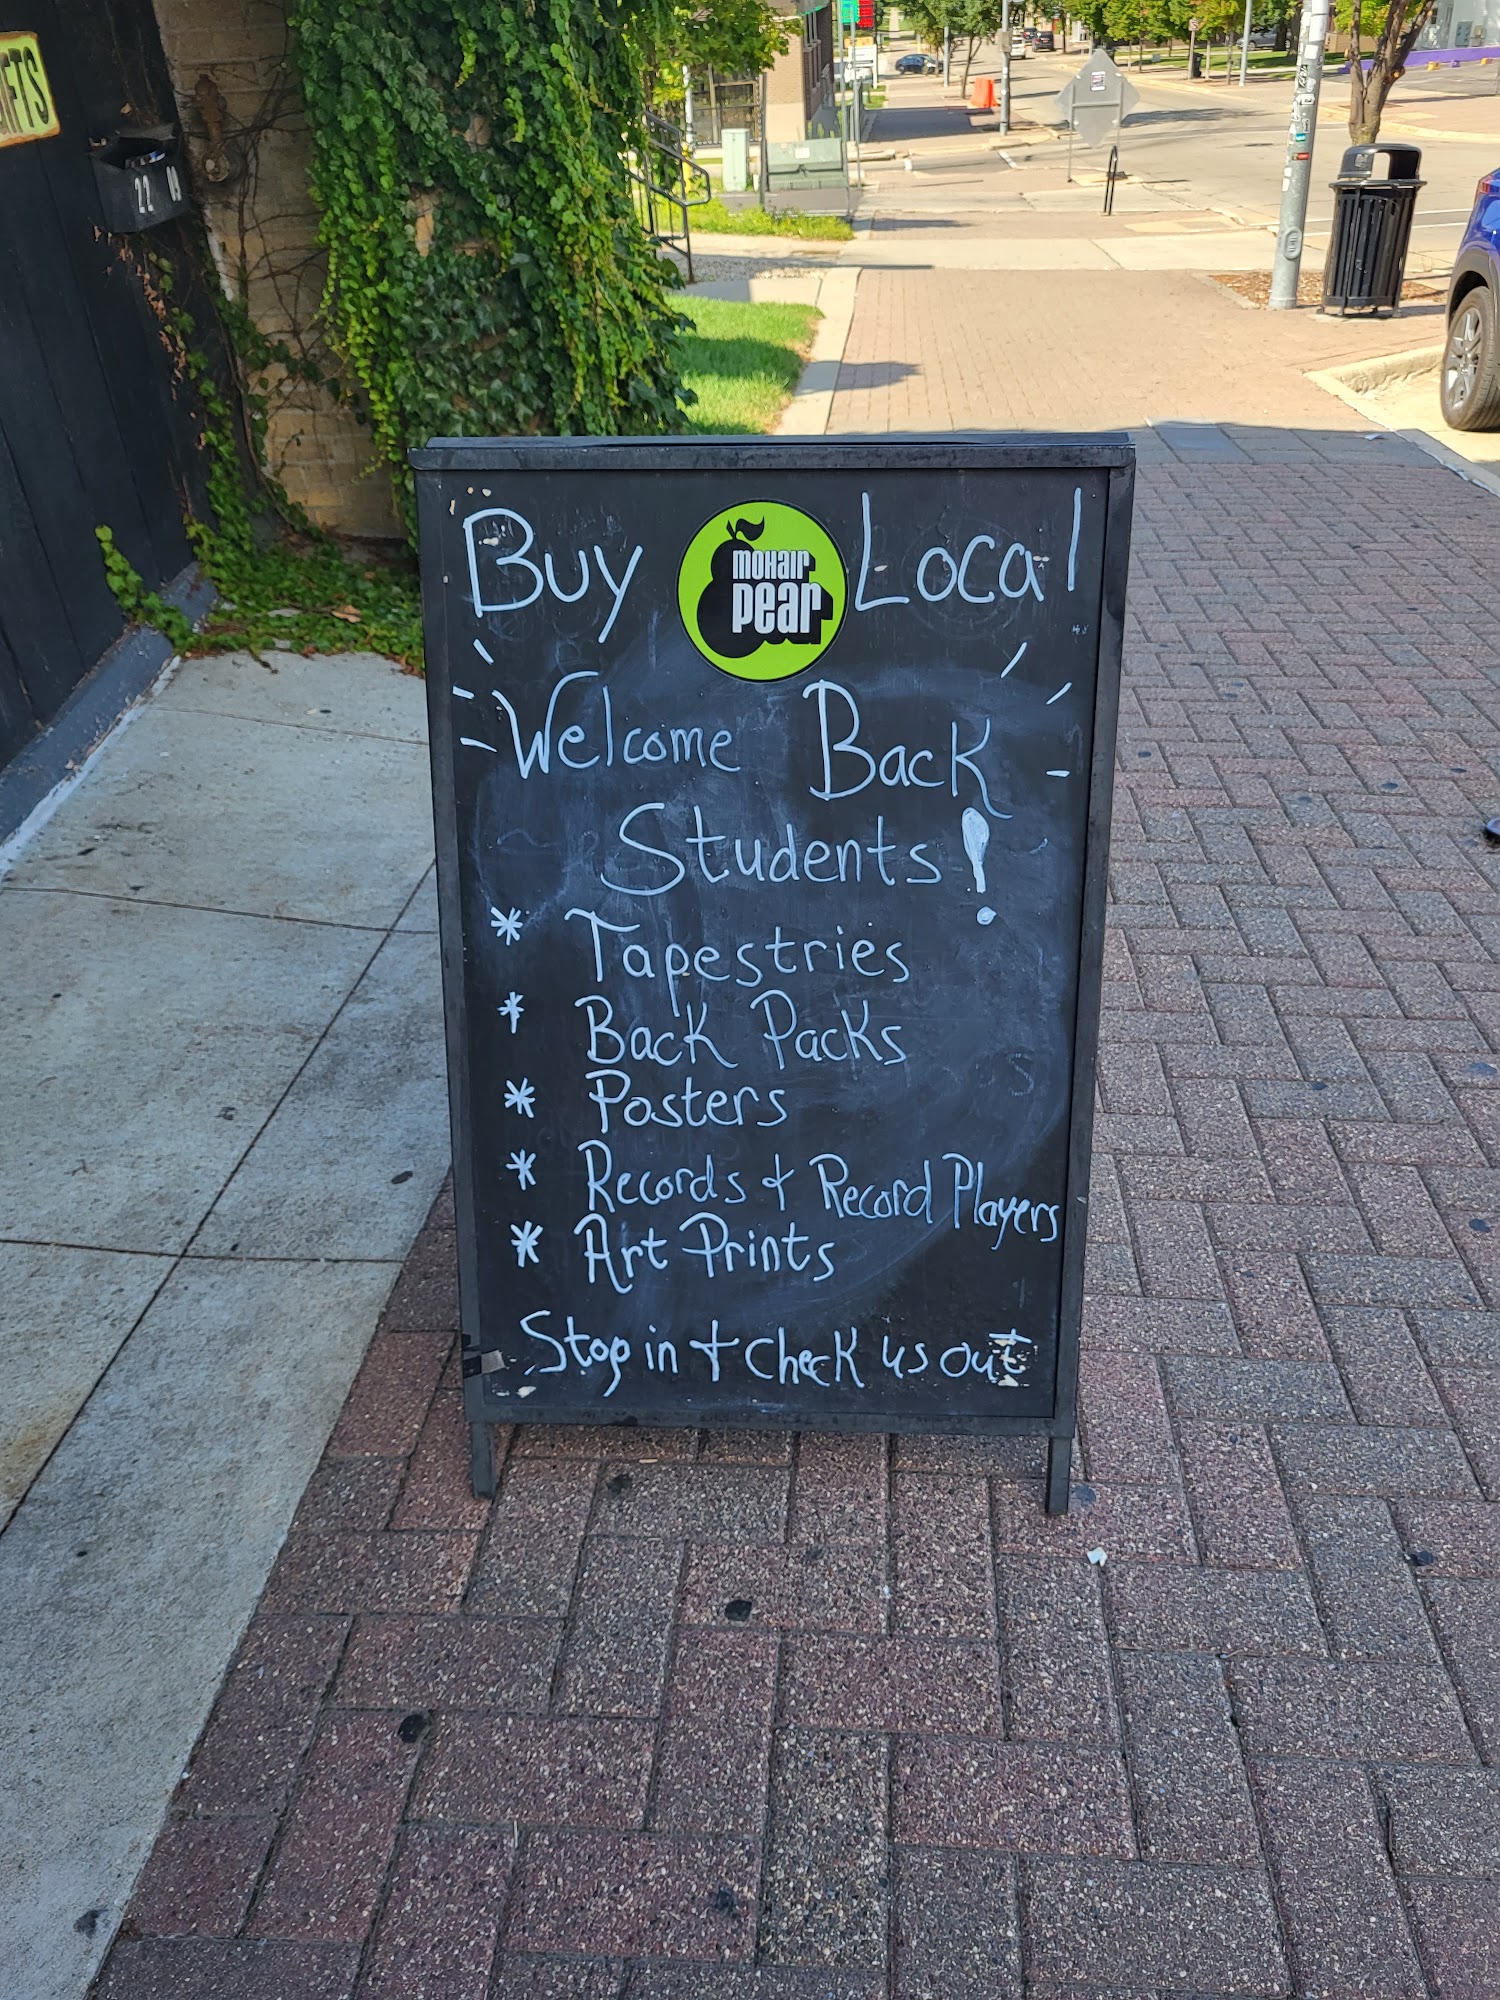 IFTS
22 09
Buy Local
MOHAIR
PEAR
Welcome Back
Students!
* Tapestries
* Back Packs
* Posters
* Records & Record Players
* Art Prints
Stop in & check us out